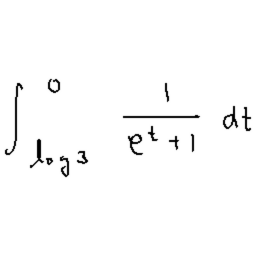 ∫_{log 3}^{0} \frac{1}{e^t + 1} dt